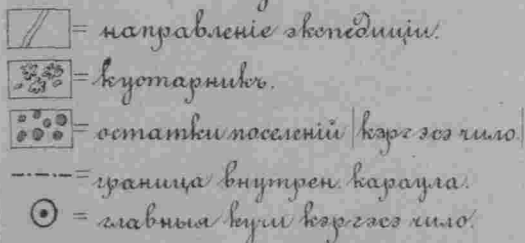 = направленіе экспедиціи.
= кустарникъ.
= остатки поселеній |кэргэсэ чило|
= граница внутрен. караула.
= главныя кучи кэргэсэ чило.